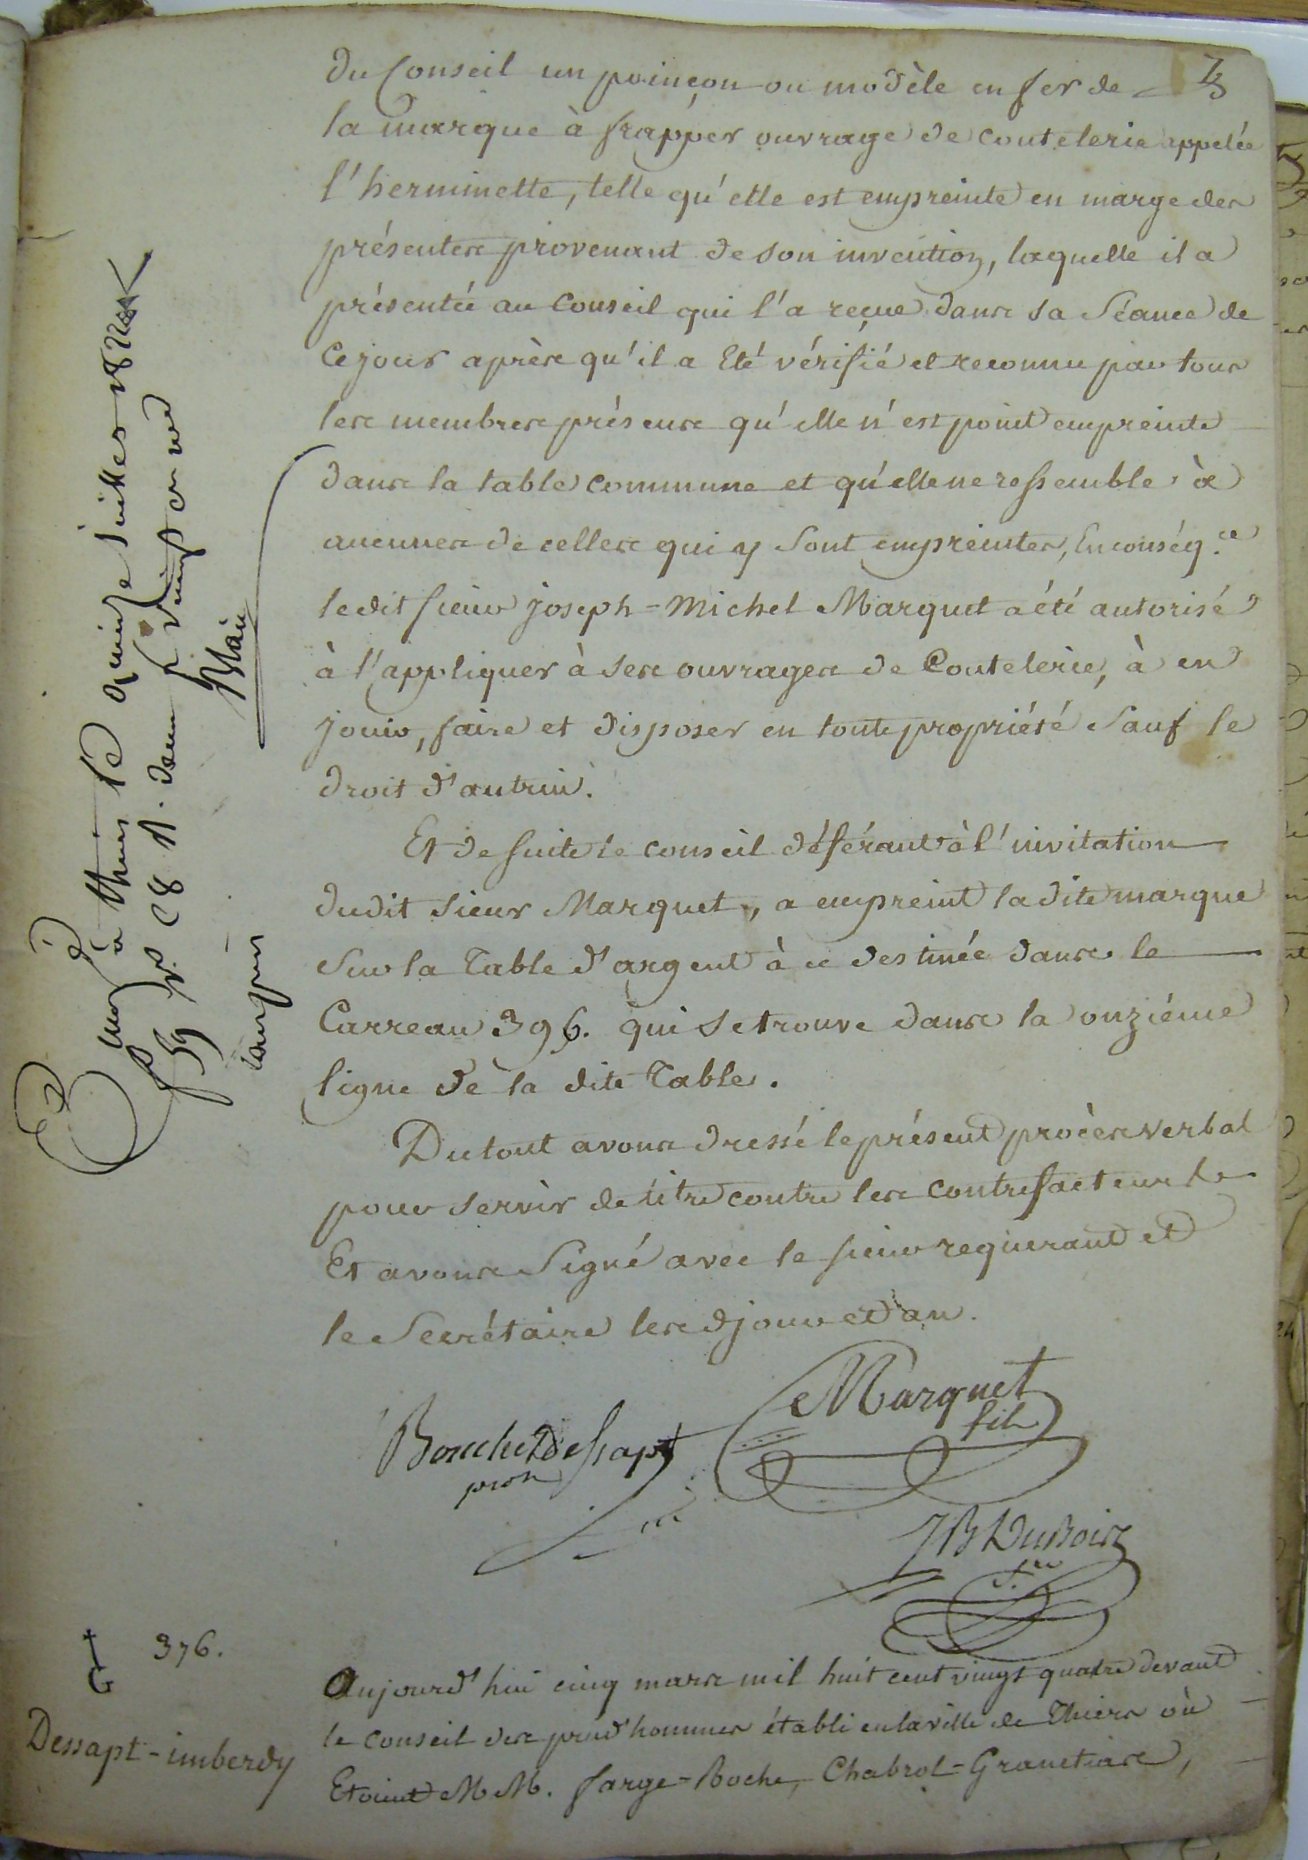 du Conseil un poinçon ou modèle en fer de
la marque à frapper ouvrage de coutelerie appelée
l'herminette, telle qu'elle est empreinte en marge des
présentes provenant de son invention, laquelle il a
présentée au Conseil qui l'a reçue dans sa Séance de
Ce jour après qu'il a Eté vérifié et reconnu par tous
les membres présens qu'elle n'est point empreinte
dans la table commune et qu'elle ne ressemble à
aucunes de celles qui y sont empreintes, En conség.ce
le dit sieur Joseph-Michel Marquet a été autorisé
à l'appliquer à ses ouvrages de Coutelerie, à en
jouir, faire et disposer en toute propriété Sauf le
droit d'autrui.
Et de suite le conseil déférant à l'invitation
dudit sieur Marquet, a empreint la dite marque
Sur la Table d'argent à ce destinée dans le
Carreau 396. qui se trouve dans la onziéme
ligne de la dite Table.
Du tout avons dressé le présent procès verbal
pour servir de titre contre les contrefacteurs
Et avons Signé avec le sieur requerant et
le Secrétaire les d jour et an.
Marquet
fils
Bouchet Dessapt
JB Dubois
à thiers le quinze juillet
Blau
376.
Dessapt-imberdy
Aujourd'hui cinq mars mil huit cent vingt quatre devant
le conseil des prud'hommes établi en la ville de Thiers où
Etoient MM. farge-Boche, Chabrol-Granetias,